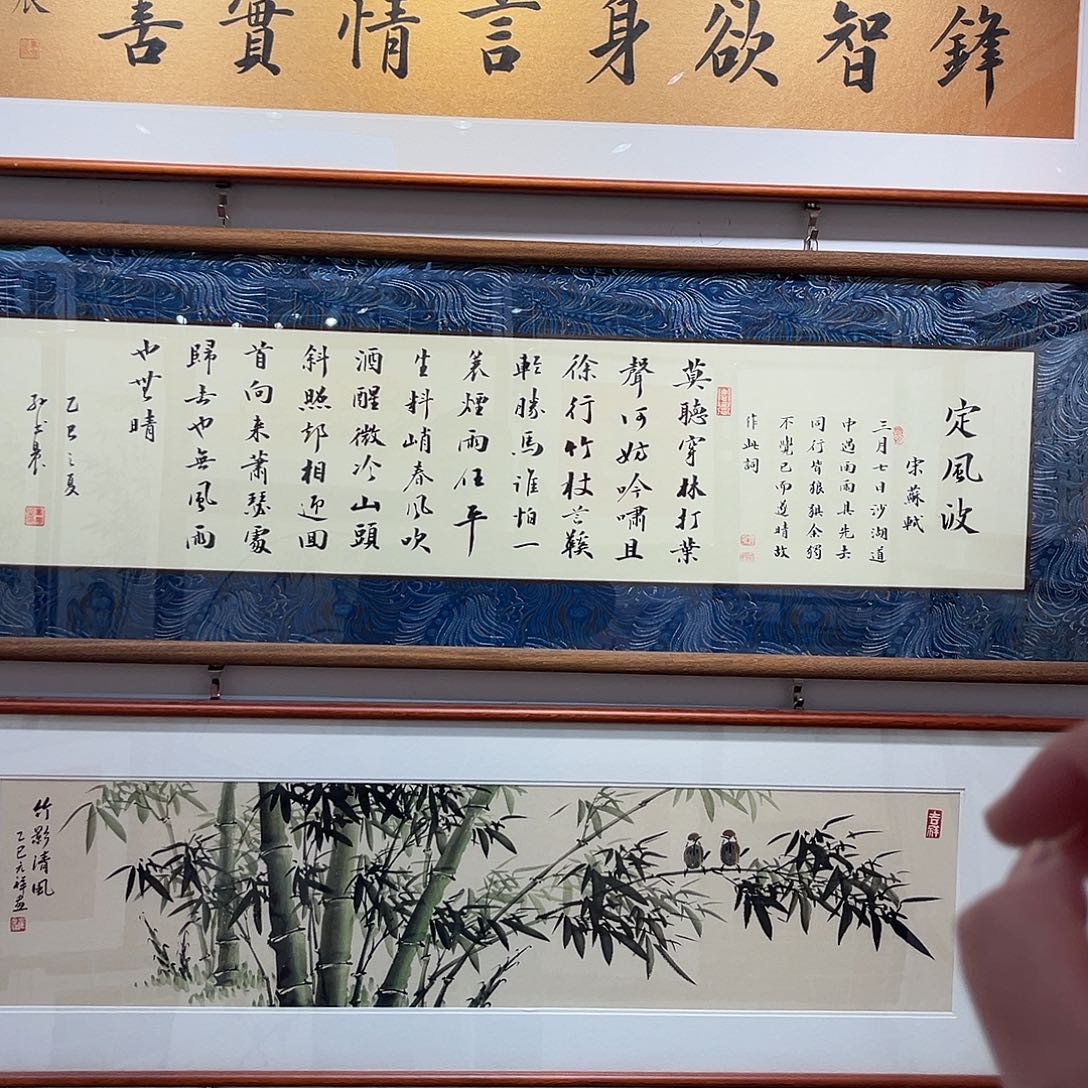 鋒
智
欲
身
言
情
實
善
定風波
宋蘇軾
三月七日沙湖道
中遇雨雨具先去
同行皆狼狽余獨
不覺已而遂晴故
作此詞
莫聽穿林打葉
聲何妨吟嘯且
徐行竹杖芒鞵
輕勝馬誰怕一
蓑煙雨任平
生料峭春風吹
酒醒微冷山頭
斜照却相迎回
首向来蕭瑟處
歸去也無風雨
也無晴
乙巳之夏
吉祥
竹影清風
乙巳元祥画